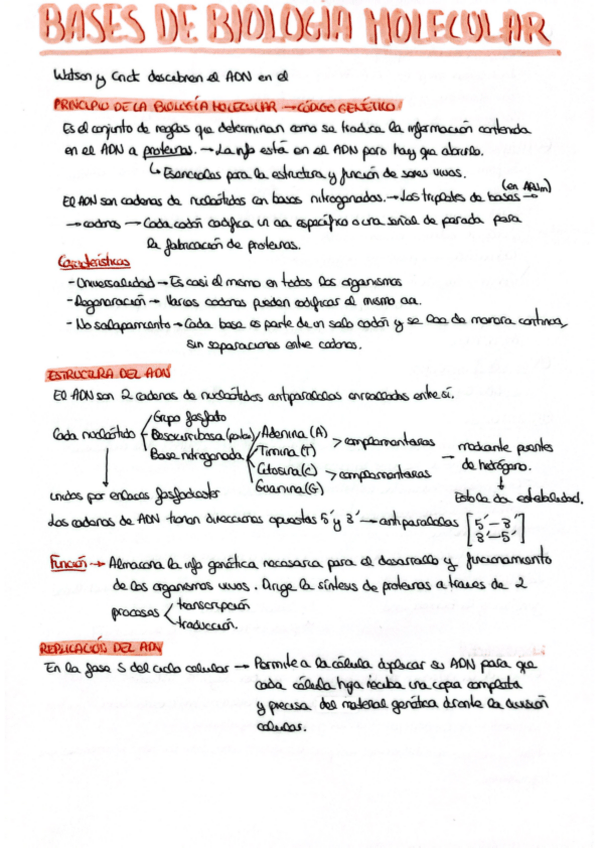 BASES DE BIOLOGIA MOLECULAR
Watson y Crick descubren el ADN en el
PRINCIPIO DE LA BIOLOGÍA MOLECULAR → CÓDIGO GENÉTICO
Es el conjunto de reglas que determinan como se traduce la información contenida
en el ADN a proteinas. → La info está en el ADN pero hay que abrirlo.
↳ Esenciales para la estructura y función de seres vivos.
El ADN son cadenas de nucleótidos con bases nitrogenadas. → Los tripletes de bases → (en ARNm)
→ codones → Cada codón codifica un aa específico o una señal de parada para
la fabricación de proteinas.
Características
- Universalidad → Es casi el mismo en todos los organismos
- Degeneración → Varios codones pueden codificar el mismo aa.
- No solapamiento → Cada base es parte de un solo codón y se lee de manera continua,
sin separaciones entre codones.
ESTRUCTURA DEL ADN
El ADN son 2 cadenas de nucleótidos antiparalelas enrolladas entre sí.
Grupo fosfato
Cada nucleótido Desoxirribosa (pentosa) Adenina (A) > complementarias → mediante puentes
Base nitrogenada Timina (T) de hidrógeno.
Citosina (C) > complementarias ↓
unidos por enlaces fosfodiester Guanina (G) Esto le da estabilidad.
Las cadenas de ADN tienen direcciones opuestas 5' y 3' → antiparalelas [5'-3'
3'-5']
Función → Almacena la info genética necesaria para el desarrollo y funcionamiento
de los organismos vivos. Dirige la síntesis de proteinas a traves de 2
procesos < transcripción
traducción.
REPLICACIÓN DEL ADN
En la fase S del ciclo celular → Permite a la célula duplicar su ADN para que
cada célula hija reciba una copia completa
y precisa del material genético durante la división
celular.